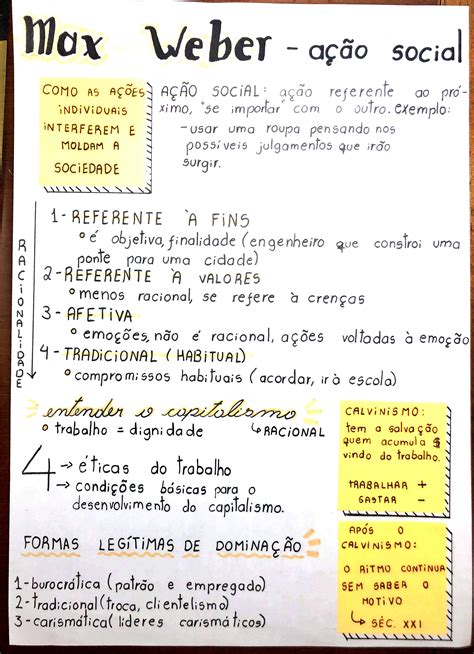 Max Weber - ação social
COMO AS AÇÕES
INDIVIDUAIS
INTERFEREM E
MOLDAM A
SOCIEDADE
AÇÃO SOCIAL: ação referente ao pró-
ximo, "se importar" com o outro. exemplo:
- usar uma roupa pensando nos
possíveis julgamentos que irão
surgir.
RACIONALIDADE
1- REFERENTE À FINS
° é objetiva, finalidade (engenheiro que constroi uma
ponte para uma cidade)
2- REFERENTE À VALORES
° menos racional, se refere à crenças
3 - AFETIVA
° emoções, não é racional, ações voltadas à emoção
4 - TRADICIONAL (HABITUAL)
° compromissos habituais (acordar, ir à escola)
entender o capitalismo
° trabalho = dignidade ↳ RACIONAL
4 → éticas do trabalho
→ condições básicas para o
desenvolvimento do capitalismo.
CALVINISMO:
tem a salvação
quem acumula $
vindo do trabalho.
TRABALHAR +
GASTAR -
FORMAS LEGÍTIMAS DE DOMINAÇÃO
1- burocrática (patrão e empregado)
2- tradicional (troca, clientelismo)
3 - carismática (lideres carismáticos)
APÓS O
CALVINISMO:
O RITMO CONTINUA
SEM SABER O
MOTIVO
↳ SÉC. XXI